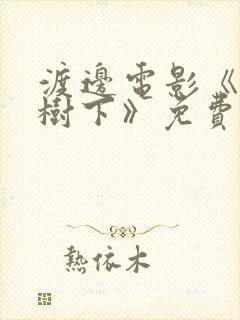 渡邊電影《
樹下》免費
熱依木